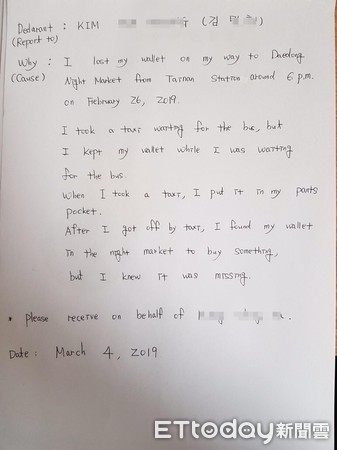 Declarant : KIM (김
(Report to)
Why : I lost my wallet on my way to Dadong
(Cause) Night Market from Tainan Station around 6 p.m.
on February 26, 2019.
I took a taxi waiting for the bus, but
I kept my wallet while I was waiting
for the bus.
When I took a taxi, I put it in my pants
pocket.
After I got off by taxi, I found my wallet
in the night market to buy something,
but I knew it was missing.
* please receive on behalf of
Date : March 4, 2019
ETtoday新聞雲